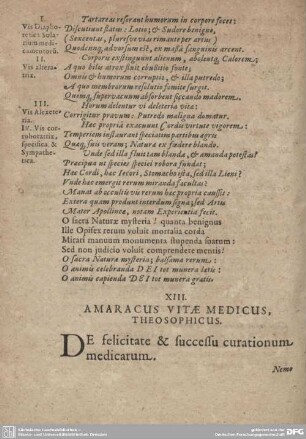 I.
Vis Diapho-
retica Salium
medicamentorū.
Tartareas reserant humorum in corpore foces:
Discutiunt flatus: Lotio, & Sudore benigno,
(Sex tentas, pluresve vias rimante per artus)
Quodcunq, adversum est, ex massa sanguinis arcent.
II.
Vis altera-
tria.
Corpora exstinguunt alienum, abolentq, Calorem;
A quo bilis atrox fuit ebullita fonte;
Omnis & humorum corruptio, & illa putredo;
A quo membrorum resolutio somite surgit.
Quemq, supervacuum absorbent siccando madorem.
III.
Vis Alexete-
ria.
Horum deletur vi deleteria virus:
Corrigitur pravum: Putredo maligna domatur.
IV. Vis cor-
roboratrix,
specifica &
Sympathe-
tica.
Hac propria exacuunt Cordis virtute vigorem:
Temperiem instaurant spectatam partibus agris
Quaq, suit virium; Natura ex fœdere blando.
Unde sed illa fluit tam blanda, & amanda potestas?
Præcipua ut species speciei robora fundat;
Hæc Cordi, hæc Jecori, Stomacho ista, sed illa Lieni?
Unde hæc emergit rerum miranda facultas?
Manat ab occultis vis rerum hæc propria caussis:
Extera quam produnt interdum signa; sed Artis
Mater Apollineæ, notam Experientia fecit.
O sacra Naturæ mysteria! quanta benignus
Ille Opifex rerum voluit mortalia corda
Mirari manuum monumenta stupenda suarum:
Sed non judicio voluit comprendere mentis!
O sacra Naturæ mysteria; balsama rerum:
O animis celebranda DEI tot munera latis:
O animis capienda DEI tot munera gratis.
XIII.
AMARACUS VITÆ MEDICUS,
THEOSOPHICUS.
DE felicitate & successu curationum
medicarum.
Nemo